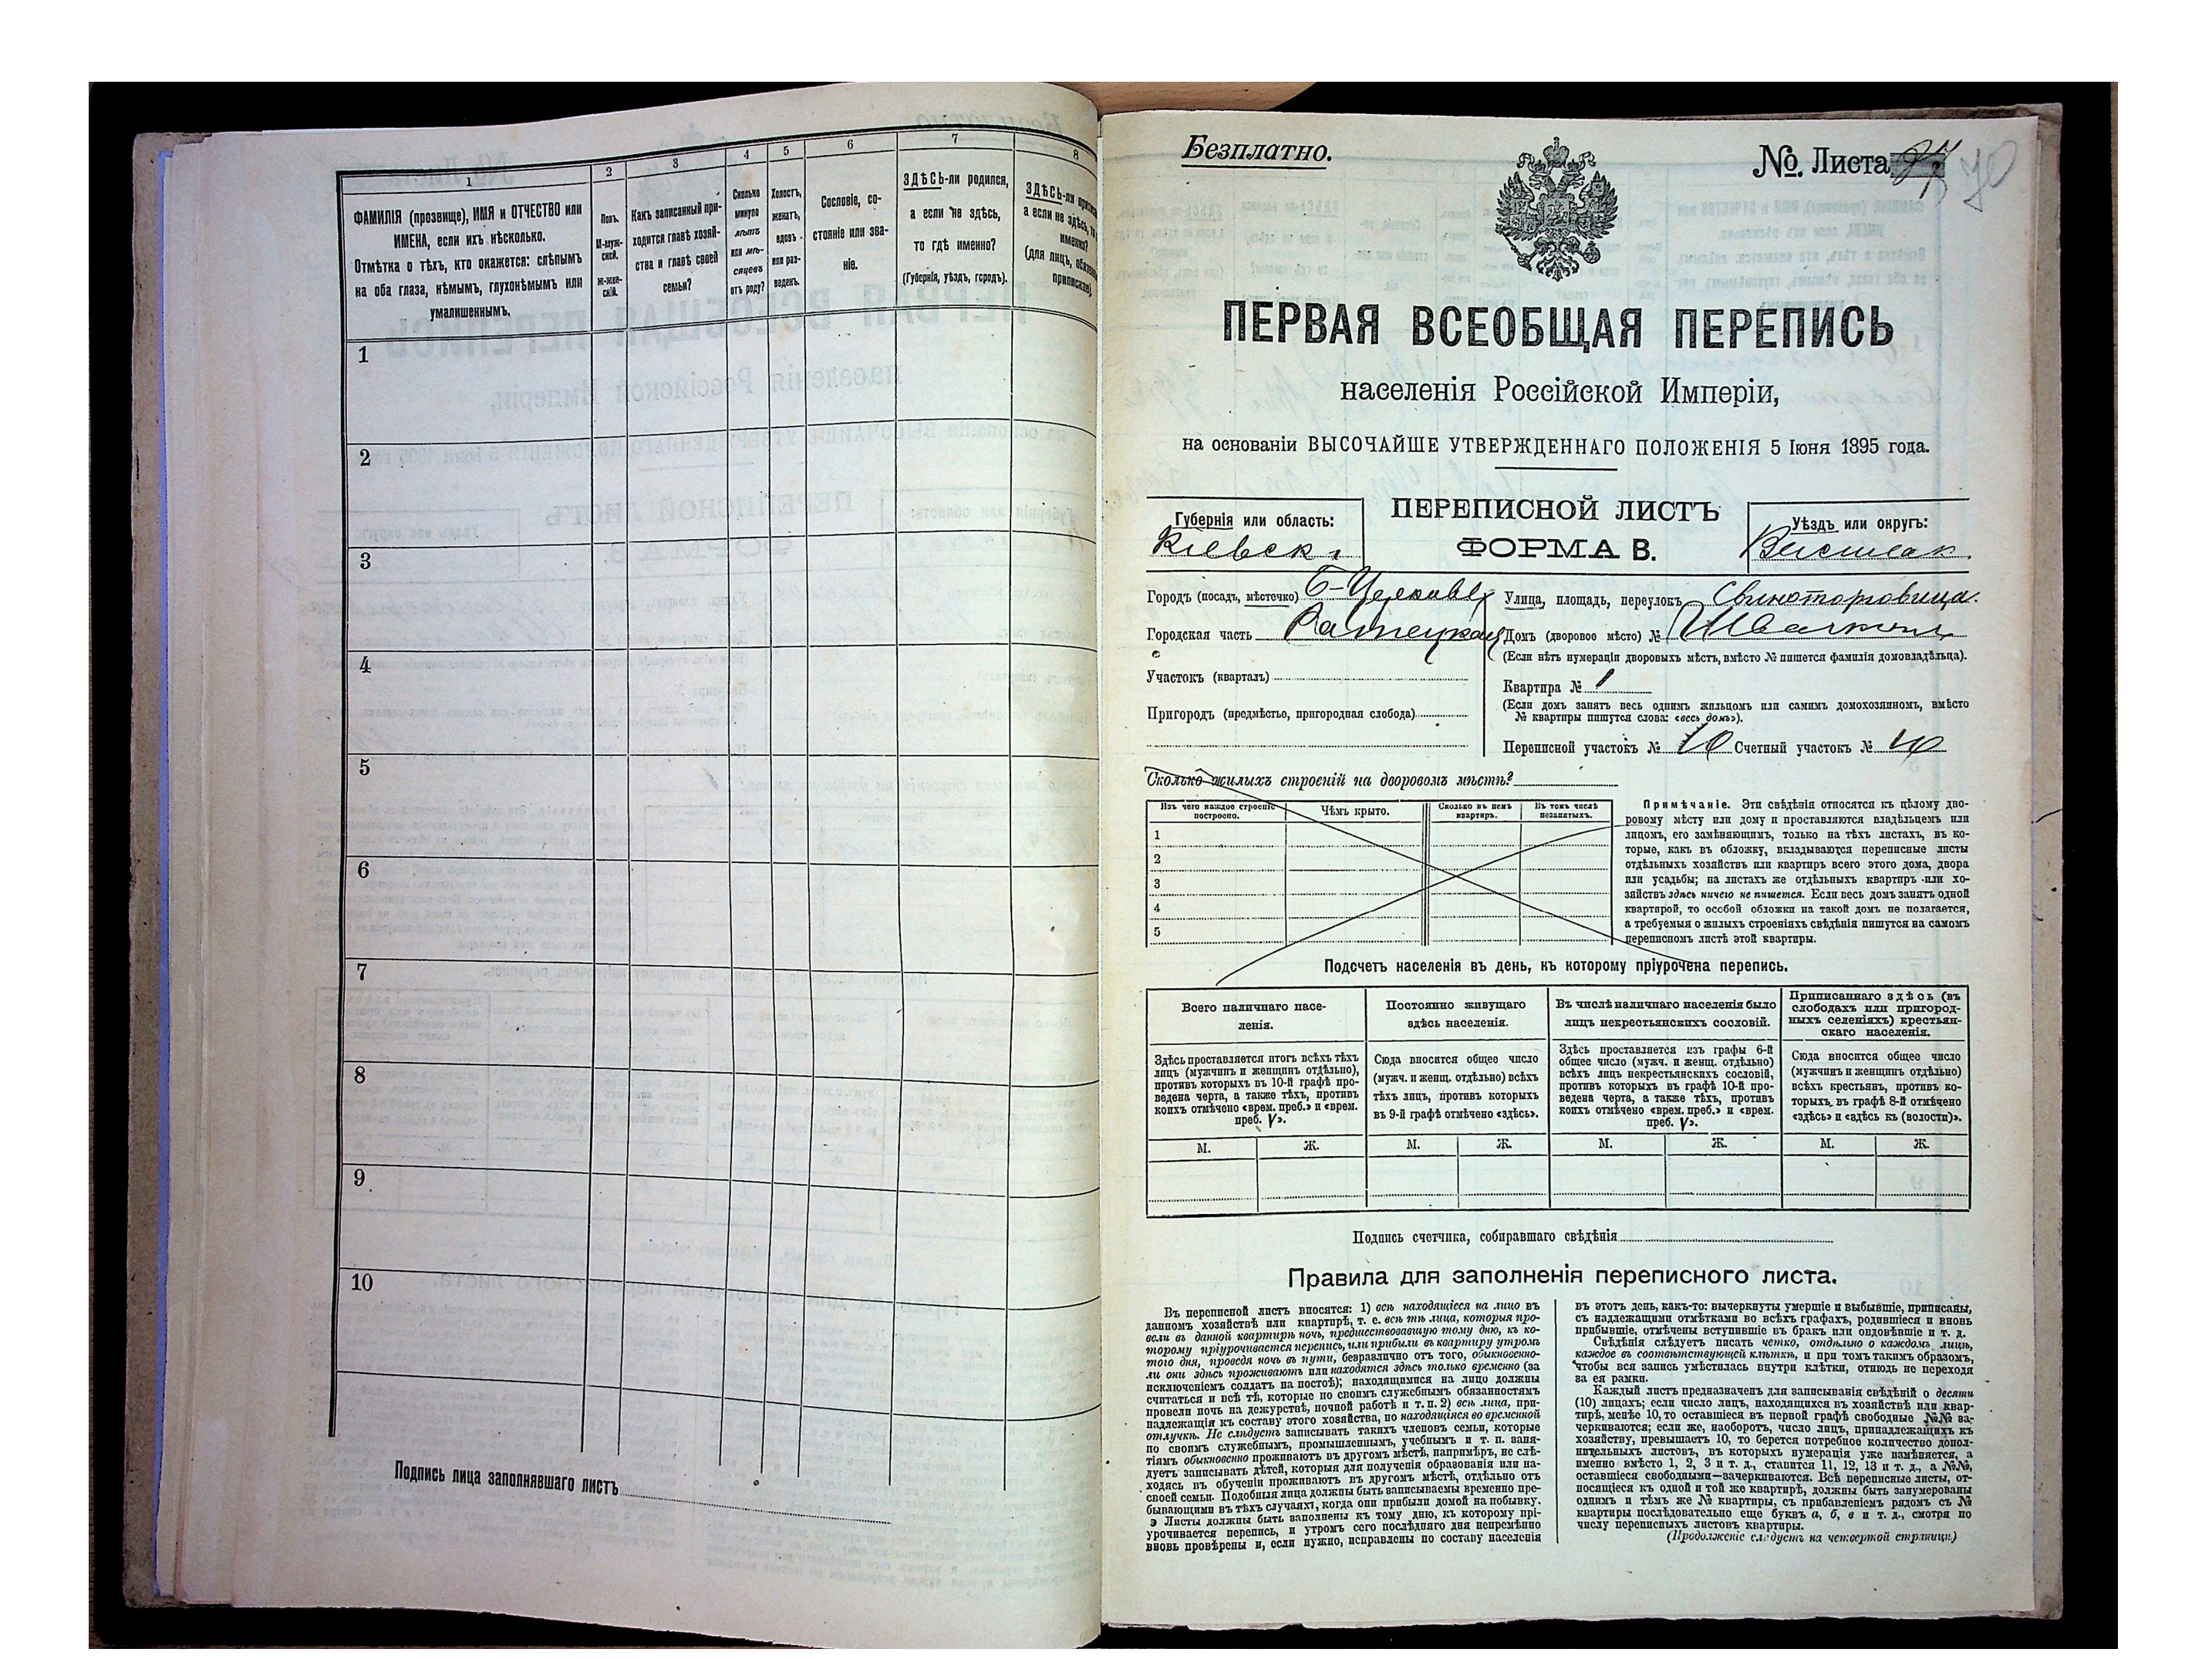 1
ФАМИЛІЯ (прозвище), ИМЯ и ОТЧЕСТВО или
ИМЕНА, если ихъ нѣсколько.
Отмѣтка о тѣхъ, кто окажется: слѣпымъ
на оба глаза, нѣмымъ, глухонѣмымъ или
умалишеннымъ.
2
Полъ.
М-муж-
ской.
Ж-жен-
скій.
3
Какъ записанный при-
ходится главѣ хозяй-
ства и главѣ своей
семьи?
4
Сколько
минуло
лѣтъ
или мѣ-
сяцевъ
отъ роду?
5
Холостъ,
женатъ,
вдовъ
или раз-
веденъ.
6
Сословіе, со-
стояніе или зва-
ніе.
7
ЗДѢСЬ-ли родился,
а если не здѣсь,
то гдѣ именно?
(Губернія, уѣздъ, городъ).
8
ЗДѢСЬ-ли
а если не здѣсь,
именно?
(для лицъ,
1
2
3
4
5
6
7
8
9
10
Подпись лица заполнявшаго листъ
Безплатно.
№. Листа
70
ПЕРВАЯ ВСЕОБЩАЯ ПЕРЕПИСЬ
населенія Россійской Имперіи,
на основаніи ВЫСОЧАЙШЕ УТВЕРЖДЕННАГО ПОЛОЖЕНІЯ 5 Іюня 1895 года.
Губернія или область:
Кіевск.
ПЕРЕПИСНОЙ ЛИСТЪ
ФОРМА В.
Уѣздъ или округъ:
Городъ (посадъ, мѣстечко) Б-Церковь
Городская часть
Участокъ (кварталъ)
Пригородъ (предмѣстье, пригородная слобода)
Улица, площадь, переулокъ
Домъ (дворовое мѣсто) №
(Если нѣтъ нумераціи дворовыхъ мѣстъ, вмѣсто № пишется фамилія домовладѣльца).
Квартира № 1
(Если домъ занятъ весь однимъ жильцомъ или самимъ домохозяиномъ, вмѣсто
№ квартиры пишутся слова: «весь домъ»).
Переписной участокъ № 10 Счетный участокъ №
Сколько жилыхъ строеній на дворовомъ мѣстѣ?
Изъ чего каждое строеніе
построено.
Чѣмъ крыто.
Сколько въ немъ
квартиръ.
Въ томъ числѣ
незанятыхъ.
1
2
3
4
5
Примѣчаніе. Эти свѣдѣнія относятся къ цѣлому дво-
ровому мѣсту или дому и проставляются владѣльцемъ или
лицомъ, его замѣняющимъ, только на тѣхъ листахъ, въ ко-
торые, какъ въ обложку, вкладываются переписные листы
отдѣльныхъ хозяйствъ или квартиръ всего этого дома, двора
или усадьбы; на листахъ же отдѣльныхъ квартиръ или хо-
зяйствъ здѣсь ничего не пишется. Если весь домъ занятъ одной
квартирой, то особой обложки на такой домъ не полагается,
а требуемыя о жилыхъ строеніяхъ свѣдѣнія пишутся на самомъ
переписномъ листѣ этой квартиры.
Подсчетъ населенія въ день, къ которому пріурочена перепись.
Всего наличнаго насе-
ленія.
Здѣсь проставляется итогъ всѣхъ тѣхъ
лицъ (мужчинъ и женщинъ отдѣльно),
противъ которыхъ въ 10-й графѣ про-
ведена черта, а также тѣхъ, противъ
коихъ отмѣчено «врем. преб.» и «врем.
преб. V».
М. Ж.
Постоянно живущаго
здѣсь населенія.
Сюда вносится общее число
(мужч. и женщ. отдѣльно) всѣхъ
тѣхъ лицъ, противъ которыхъ
въ 9-й графѣ отмѣчено «здѣсь».
М. Ж.
Въ числѣ наличнаго населенія было
лицъ некрестьянскихъ сословій.
Здѣсь проставляется изъ графы 6-й
общее число (мужч. и женщ. отдѣльно)
всѣхъ лицъ некрестьянскихъ сословій,
противъ которыхъ въ графѣ 10-й про-
ведена черта, а также тѣхъ, противъ
коихъ отмѣчено «врем. преб.» и «врем.
преб. V».
М. Ж.
Приписаннаго здѣсь (въ
слободахъ или пригород-
ныхъ селеніяхъ) крестьян-
скаго населенія.
Сюда вносится общее число
(мужчинъ и женщинъ отдѣльно)
всѣхъ крестьянъ, противъ ко-
торыхъ въ графѣ 8-й отмѣчено
«здѣсь» и «здѣсь къ (волости)».
М. Ж.
Подпись счетчика, собиравшаго свѣдѣнія
Правила для заполненія переписного листа.
Въ переписной листъ вносятся: 1) всѣ находящіеся на лицо въ
данномъ хозяйствѣ или квартирѣ, т. е. всѣ тѣ лица, которыя про-
вели въ данной квартирѣ ночь, предшествовавшую тому дню, къ ко-
торому пріурочивается перепись, или прибыли въ квартиру утромъ
того дня, проведя ночь въ пути, безразлично отъ того, обыкновенно-
ли они здѣсь проживаютъ или находятся здѣсь только временно (за
исключеніемъ солдатъ на постоѣ); находящимися на лицо должны
считаться и всѣ тѣ, которые по своимъ служебнымъ обязанностямъ
провели ночь на дежурствѣ, ночной работѣ и т. п. 2) всѣ лица, при-
надлежащія къ составу этого хозяйства, но находящіяся во временной
отлучкѣ. Не слѣдуетъ записывать такихъ членовъ семьи, которые
по своимъ служебнымъ, промышленнымъ, учебнымъ и т. п. заня-
тіямъ обыкновенно проживаютъ въ другомъ мѣстѣ, напримѣръ, не слѣ-
дуетъ записывать дѣтей, которыя для полученія образованія или на-
ходясь въ обученіи проживаютъ въ другомъ мѣстѣ, отдѣльно отъ
своей семьи. Подобныя лица должны быть записываемы временно пре-
бывающими въ тѣхъ случаяхъ, когда они прибыли домой на побывку.
Листы должны быть заполнены къ тому дню, къ которому прі-
урочивается перепись, и утромъ сего послѣдняго дня непремѣнно
вновь провѣрены и, если нужно, исправлены по составу населенія
въ этотъ день, какъ-то: вычеркнуты умершіе и выбывшіе, приписаны,
съ надлежащими отмѣтками во всѣхъ графахъ, родившіеся и вновь
прибывшіе, отмѣчены вступившіе въ бракъ или овдовѣвшіе и т. д.
Свѣдѣнія слѣдуетъ писать четко, отдѣльно о каждомъ лицѣ,
каждое въ соотвѣтствующей клѣткѣ, и при томъ такимъ образомъ,
чтобы вся запись умѣстилась внутри клѣтки, отнюдь не переходя
за ея рамки.
Каждый листъ предназначенъ для записыванія свѣдѣній о десяти
(10) лицахъ; если число лицъ, находящихся въ хозяйствѣ или квар-
тирѣ, менѣе 10, то оставшіеся въ первой графѣ свободные №№ за-
черкиваются; если же, наоборотъ, число лицъ, принадлежащихъ къ
хозяйству, превышаетъ 10, то берется потребное количество допол-
нительныхъ листовъ, въ которыхъ нумерація уже измѣняется, а
именно вмѣсто 1, 2, 3 и т. д., ставится 11, 12, 13 и т. д., а №№,
оставшіеся свободными—зачеркиваются. Всѣ переписные листы, от-
носящіеся къ одной и той же квартирѣ, должны быть занумерованы
однимъ и тѣмъ же № квартиры, съ прибавленіемъ рядомъ съ №
квартиры послѣдовательно еще буквъ а, б, в и т. д., смотря по
числу переписныхъ листовъ квартиры.
(Продолженіе слѣдуетъ на четвертой страницѣ)